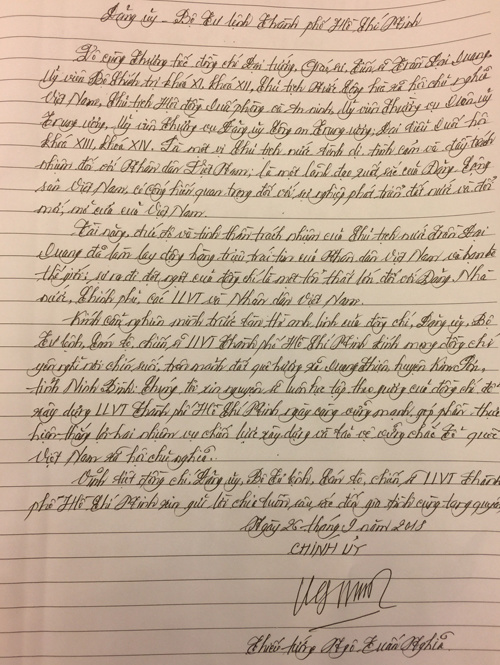 Đảng ủy - Bộ Tư lệnh Thành phố Hồ Chí Minh
Vô cùng thương tiếc đồng chí Đại tướng, Giáo sư, Tiến sĩ Trần Đại Quang,
Ủy viên Bộ Chính trị khóa XI, khóa XII, Chủ tịch nước Cộng hòa xã hội chủ nghĩa
Việt Nam, Chủ tịch Hội đồng Quốc phòng và An ninh, Ủy viên Thường vụ Quân ủy
Trung ương, Ủy viên Thường vụ Đảng ủy Công an Trung ương, Đại biểu Quốc hội
khóa XIII, khóa XIV. Là một vị Chủ tịch nước bình dị, tình cảm và đầy trách
nhiệm đối với Nhân dân Việt Nam; là một lãnh đạo xuất sắc của Đảng Cộng
sản Việt Nam, có cống hiến quan trọng đối với sự nghiệp phát triển đất nước và đổi
mới, mở cửa của Việt Nam.
Tài năng, chí và tinh thần trách nhiệm của Chủ tịch nước Trần Đại
Quang đã làm lay động hàng triệu trái tim của Nhân dân Việt Nam và bạn bè
thế giới; sự ra đi đột ngột của đồng chí là một tổn thất lớn đối với Đảng, Nhà
nước, Chính phủ, các LLVT và Nhân dân Việt Nam.
Kính cẩn nghiêng mình trước anh linh của đồng chí, Đảng ủy, Bộ
Tư lệnh, cán bộ, chiến sĩ LLVT Thành phố Hồ Chí Minh kính mong đồng chí
yên nghỉ nơi chín suối, trên mảnh đất quê hương xã Quang Thiện, huyện Kim Sơn,
tỉnh Ninh Bình. Chúng tôi xin nguyện sẽ luôn học tập theo gương của đồng chí để
xây dựng LLVT Thành phố Hồ Chí Minh ngày càng vững mạnh, góp phần thực
hiện thắng lợi hai nhiệm vụ chiến lược xây dựng và bảo vệ vững chắc Tổ quốc
Việt Nam xã hội chủ nghĩa.
Vĩnh biệt đồng chí, Đảng ủy, Bộ Tư lệnh, cán bộ, chiến sĩ LLVT thành
phố Hồ Chí Minh xin gửi lời chia buồn sâu sắc đến gia đình cùng tang quyến.
Ngày 26 tháng 9 năm 2018
CHÍNH ỦY
Thiếu tướng Ngô Tuấn Nghĩa